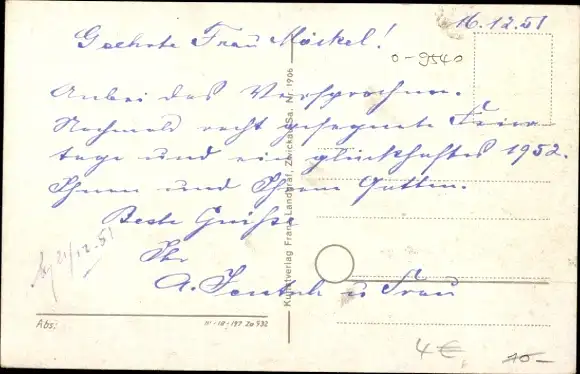 16.12.51
Geehrte Frau Möckel!
0-9540
Anbei das Versprochene.
Nochmals recht gesegnete Feier-
tage und ein glückhaftes 1952.
Ihnen und Ihrem Gatten.
Beste Grüße
Ihr
A. Jentzsch u. Frau
21/12.51
Kunstverlag Franz Landgraf, Zwickau/Sa. Nr. 1906
Abs:
III-10-197 Zu 932
4€
10-